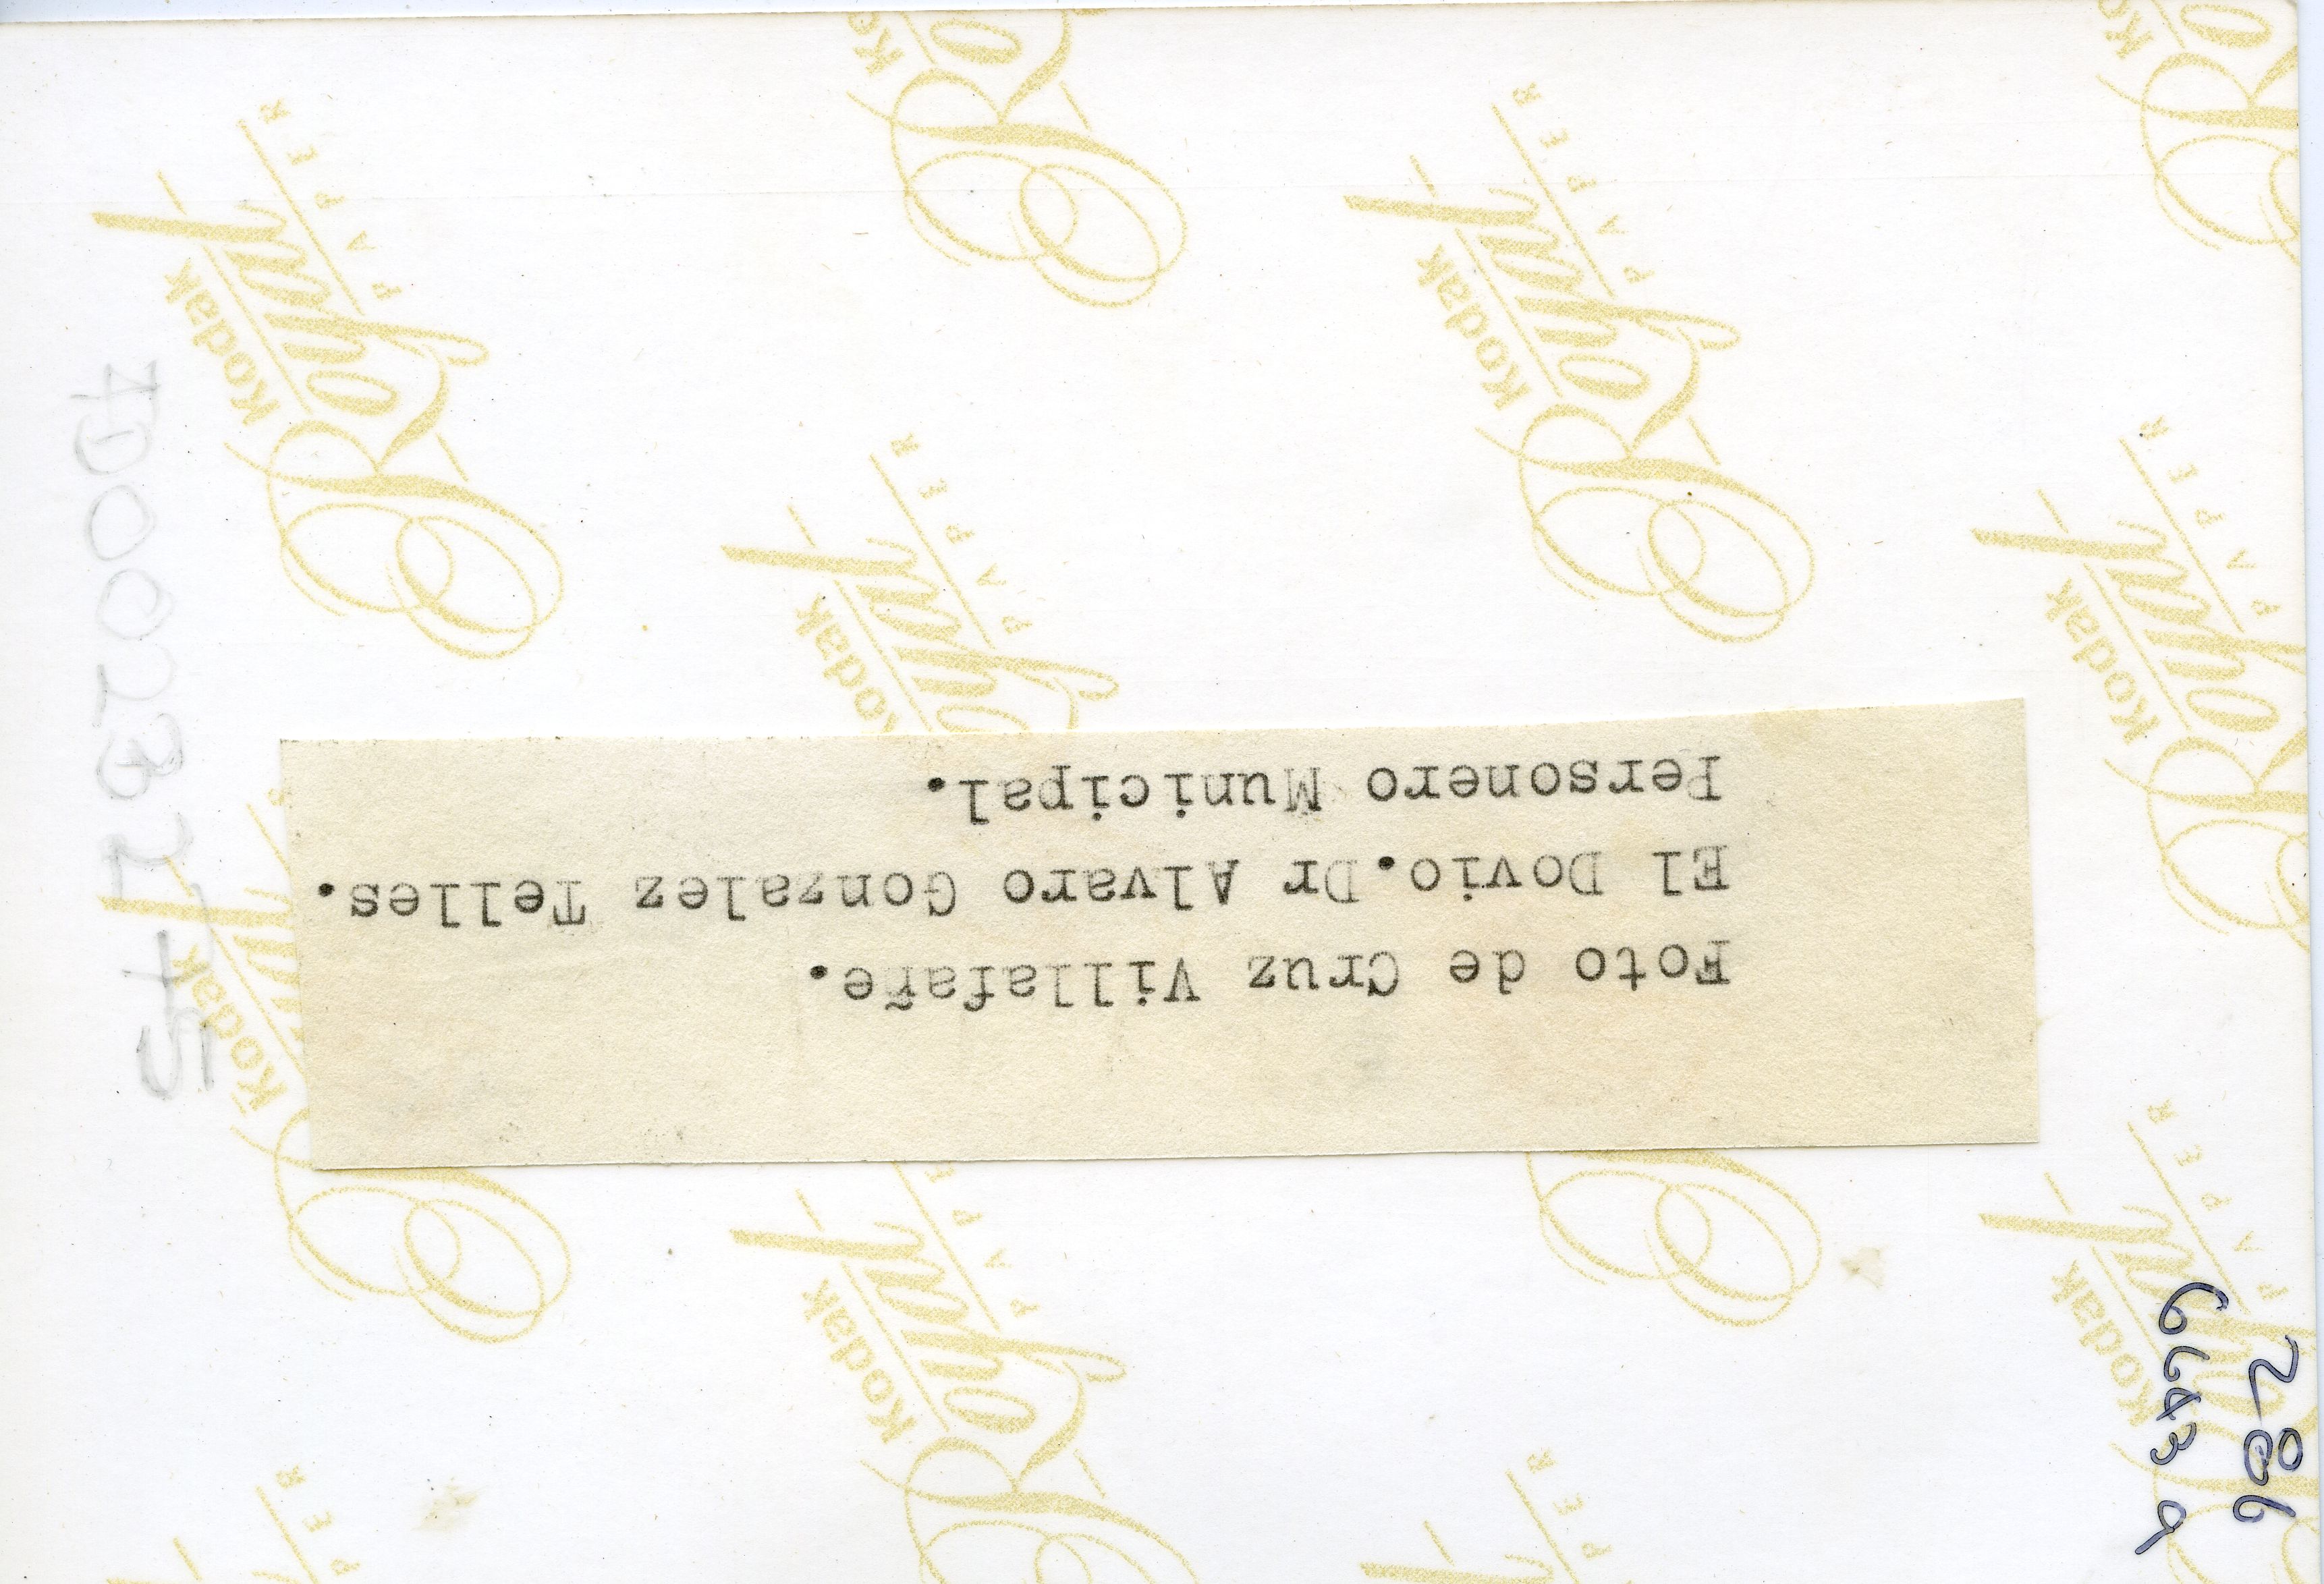 Foto de Cruz Villafañe.
El Dovio.Dr Alvaro Gonzalez Telles.
Personero Municipal.
286
Kodak
Royal
PAPER